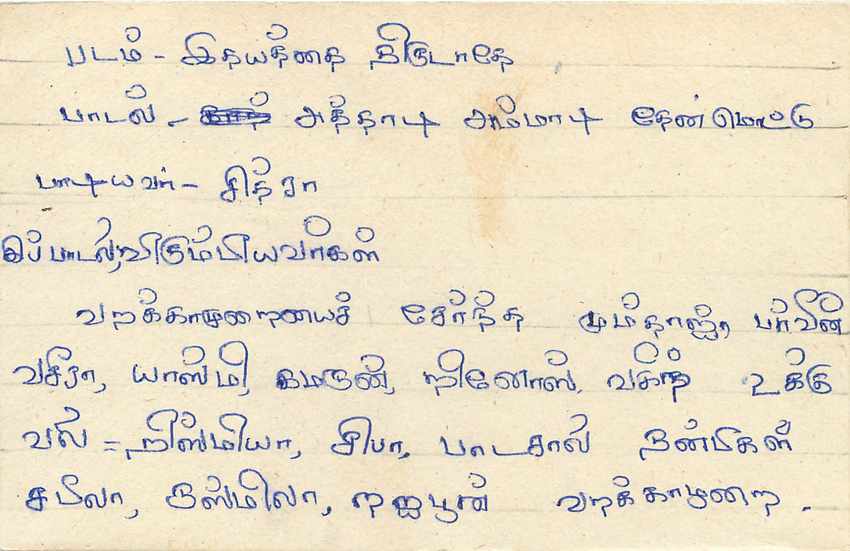 படம் - இதயத்தை திருடாதே
பாடல் - அத்தாடி அம்மாடி தேன்மொட்டு
பாடியவர் - சித்ரா
இப்பாடல் விரும்பியவர்கள்
வறக்காமுறையைச் சேர்ந்த மும்தாஜ், பர்வீன்
வசீரா, யாஸ்மி, கமருன், நிளோஸ், உக்கு
வல = நிஸ்மியா, சிபா, பாடசால் நன்பிகள்
சபீலா, ருஸ்மிலா, நஜபூன் வறக்காமுறை.